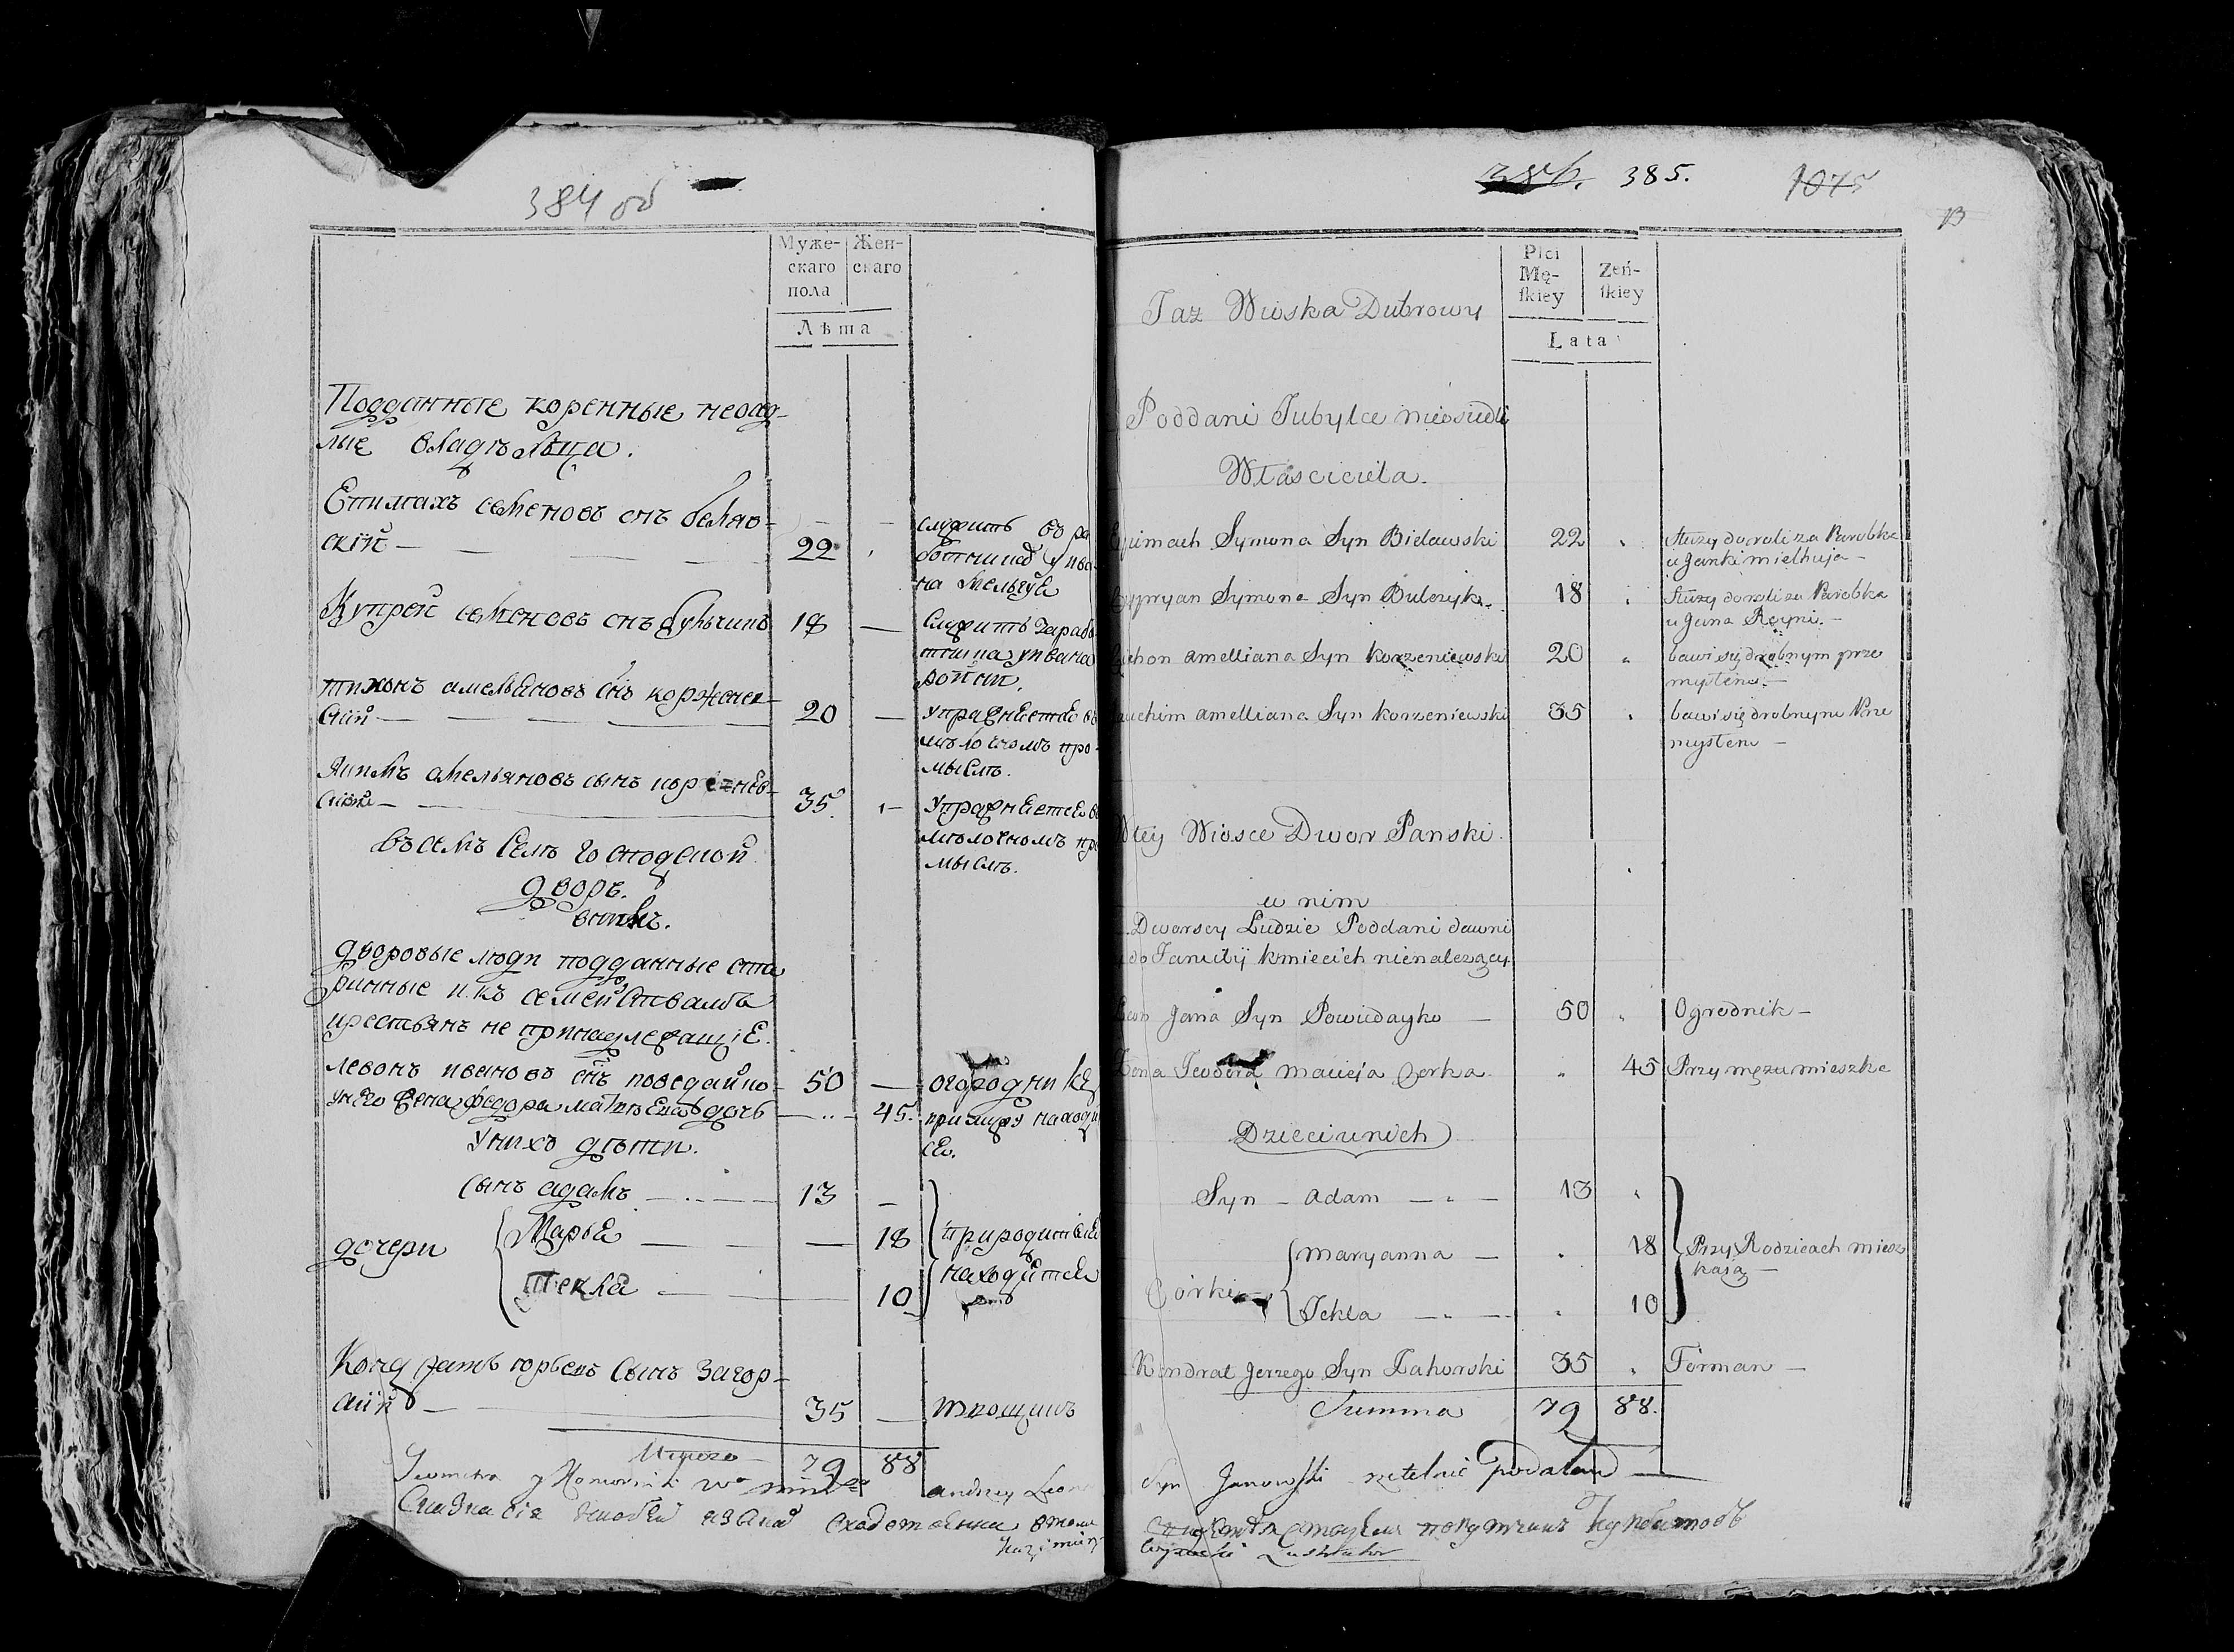 384 об
Муже-
скаго
пола
Жен-
скаго
Лѣта
Подданные коренные неосед-
лые владѣльца.
Епимахъ семеновъ снъ беляв-
скій — 22
служитъ въ ра
ботникахъ у ива
на
Купрей семеновъ снъ бульчикъ 18 —
служитъ зарабо
тника у ивана
Тихонъ амельяновъ снъ корженев-
скій — 20 —
упражняется въ
мѣлочномъ про-
мыслѣ.
Якимъ амельяновъ сынъ корженев-
скій — 35. —
упражняется въ
мѣлочномъ про
мыслѣ.
Въ семъ селѣ господской
дворъ.
внемъ.
дворовые люди подданные ста
ринные и къ семействамъ
крестьянъ не принадлежащіе.
левонъ ивановъ снъ поведайко- 50 — огородникъ
у него жена федора матвѣева дочь — 45. при мужу находит
ся.
у нихъ дѣти.
сынъ адамъ — 13 —
дочери
Марья — 18
Текля — 10
при родителя
находятся
Кондратъ юрьевъ сынъ загор-
скій — 35 —
Итого 79 88
andrzey Leon
385.
1075
Płci
Mę-
ſkiey
Zeń-
ſkiey
Lata
Taz Wioska Dubrowy
Poddani Tubylce nieosiedli
Własciciela.
Epimach Symona Syn Bielawski 22 „
Służy do roli za Parobka
u Janki
Cypryan Symona Syn Bulczyk 18 „
Służy do roli za Parobka
u Jana
Tichon amelliana Syn Korzeniewski 20 „
bawi się drobnym prze
mysłem —
Jauchim amelliana Syn Korzeniewski 35 „
bawi się drobnym Prze
mysłem —
Wtey Wiosce Dwor Panski.
w nim
Dworscy Ludzie Poddani dawni
do Familij kmiecich nienalezący.
Leon Jana Syn Powiedayko — 50 „ Ogrodnik —
Zona Teodora Macieja Corka „ 45 Przy męzu mieszka
Dzieci u nich
Syn — Adam — „ — 13 „
Corki
Maryanna — „ 18
Tekla — „ — „ 10
Przy Rodzicach miesz
kaią —
Kondrat Jerzego Syn Zahorski 35 „ Forman —
Summa 79 88.
Syn Janowski rzetelnie podałem —